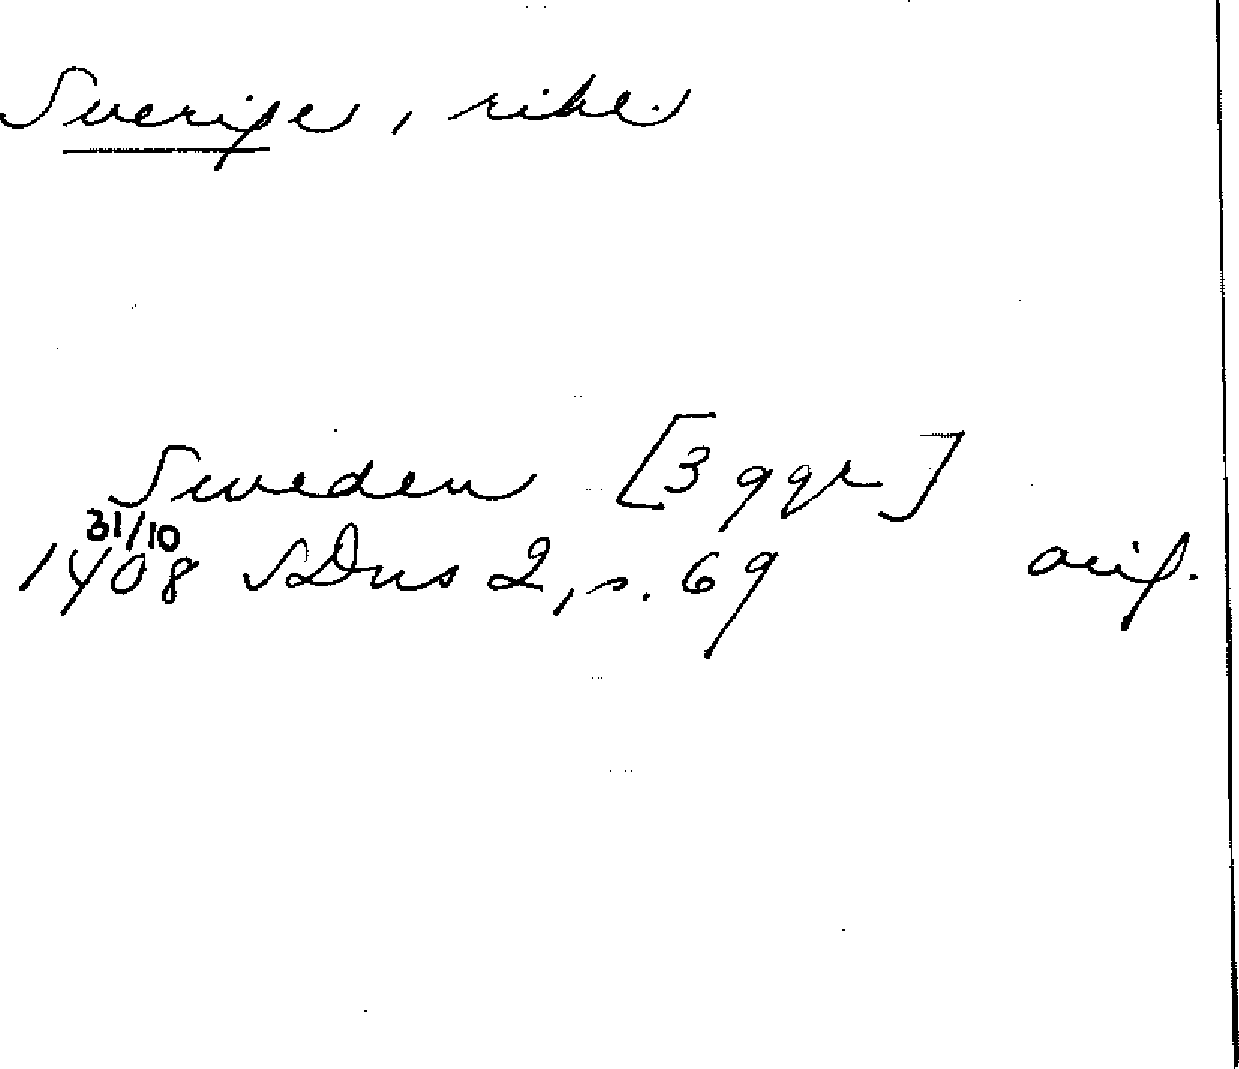 Sverige, rike.
Sweden [3 ggr]
31/10
1408 SDns 2, s. 69 orig.